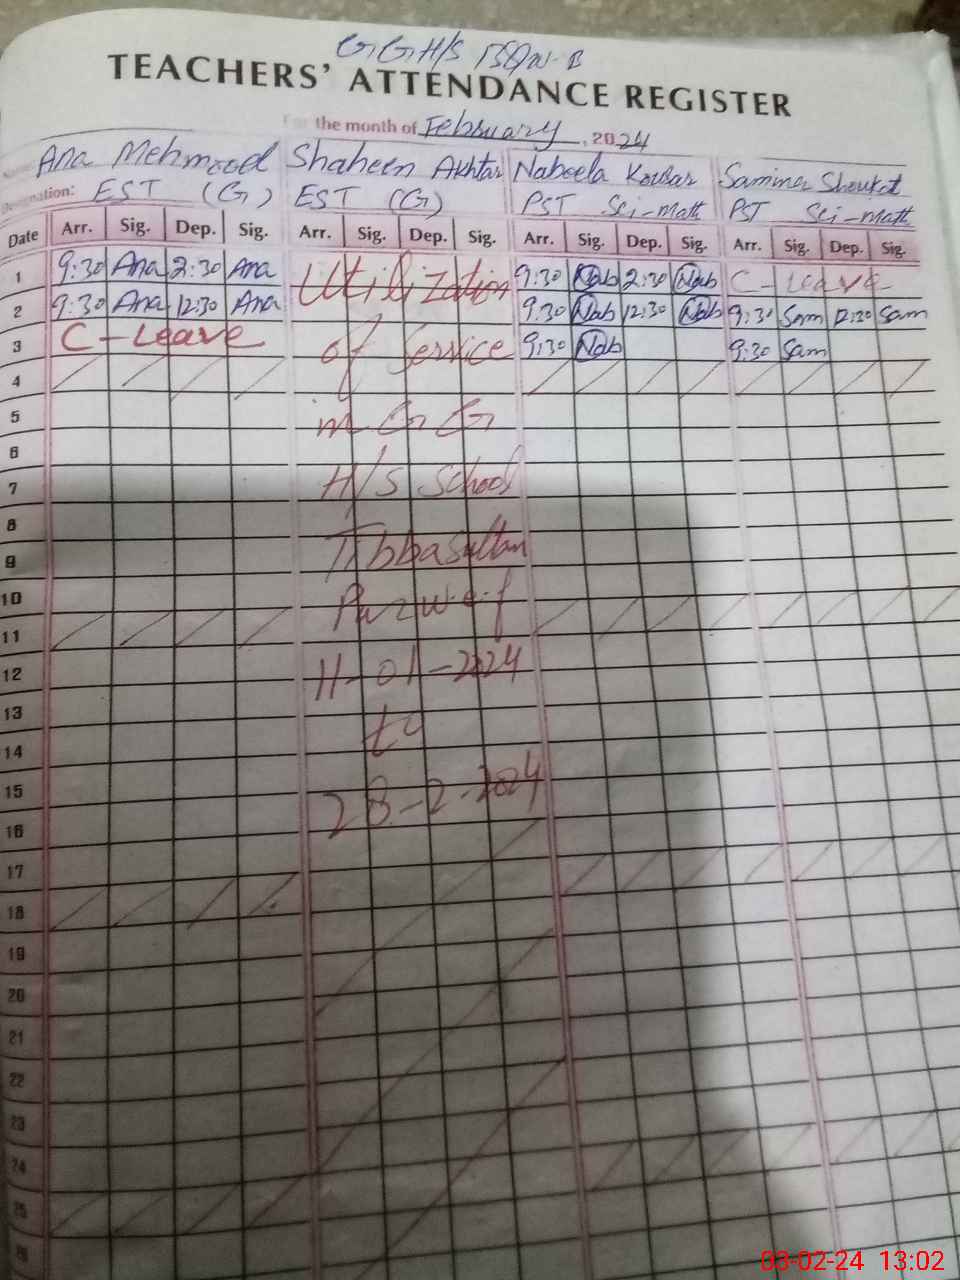 G.G.H/S
TEACHERS' ATTENDANCE REGISTER
For the month of February, 2024
Name: Ana Mehmood Shaheen Akhtar Nabeela Kousar Samina Shoukat
Designation: EST (G) EST (G) PST Sci-Math PST Sci-Math
Date Arr. Sig. Dep. Sig. Arr. Sig. Dep. Sig. Arr. Sig. Dep. Sig. Arr. Sig. Dep. Sig.
1 9:30 Ana 2:30 Ana Utilization 9:30 Nab 2:30 Nab C-Leave
2 9:30 Ana 12:30 Ana 9:30 Nab 12:30 Nab 9:30 Sam 12:30 Sam
3 C-Leave of Service 9:30 Nab 9:30 Sam
4
5 in G G
6
7 H/S School
8
9 Tibba Sultan
10 Pur w.e.f
11
12 11-01-2024
13
14 to
15
16 28-2-2024
17
18
19
20
21
22
23
24
25
26
03-02-24 13:02